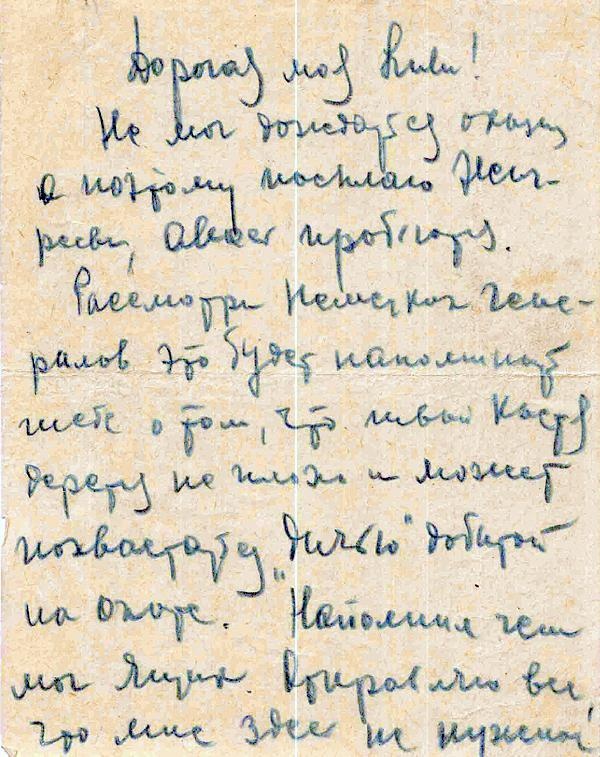 Дорогая моя Киви!
Не мог дождаться оказии
а поэтому посылаю
авось пробьются.
Рассмотри Немецких Гене-
ралов это будет напоминать
тебе о том, что твой Костя
дерется не плохо и может
похвастаться „дичью" добытой
на охоте. Наполнил чем
мог Ящик. Отправляю все,
что мне здесь не нужно